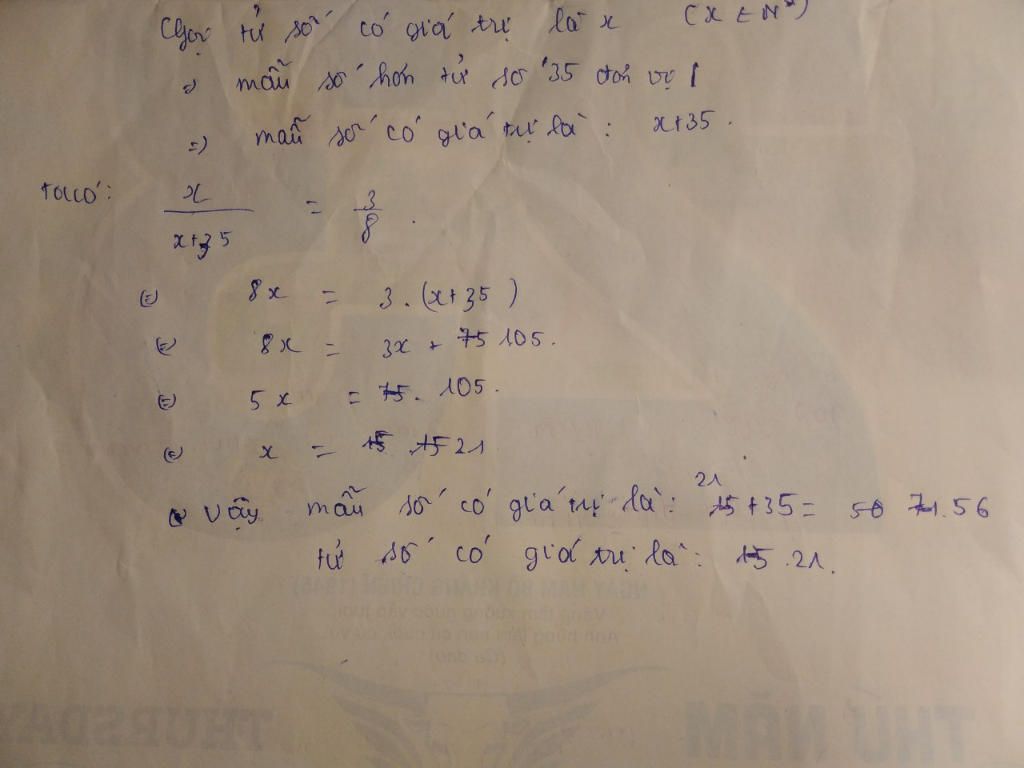 Gọi tử số có giá trị là x (x ∈ N*)
=> mẫu số hơn tử số 35 đơn vị
=> mẫu số có giá trị là: x+35.
ta có: x/(x+35) = 3/8.
<=> 8x = 3.(x+35)
<=> 8x = 3x + 75 105.
<=> 5x = 75. 105.
<=> x = 15 .15 21
Vậy mẫu số có giá trị là: 15 21 +35 = 50 71.56
tử số có giá trị là: 15.21.
NGÀY NAM BỘ KHÁNG CHIẾN (1945)
(Ca dao)
THURSDAY THỨ NĂM